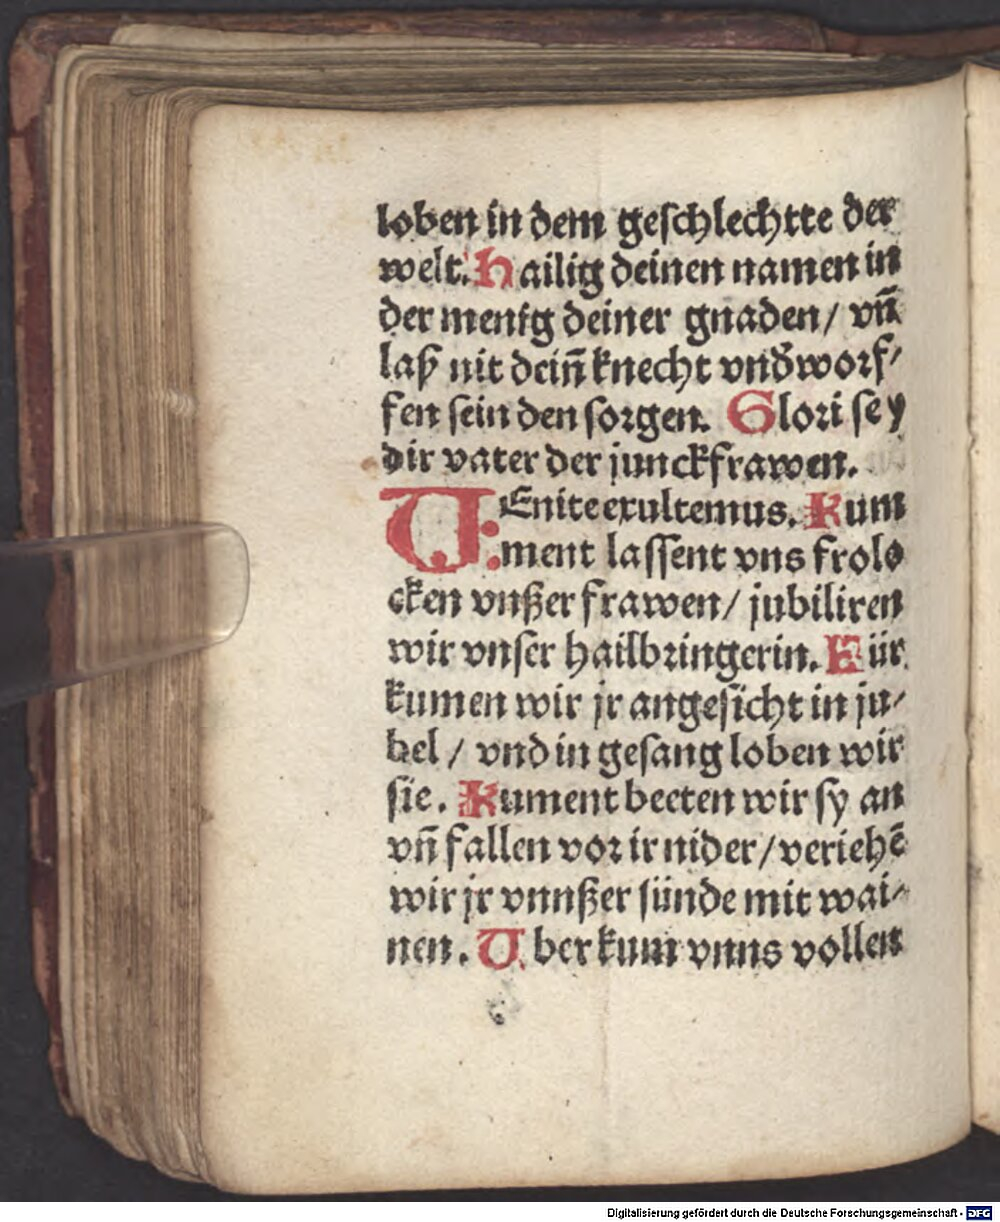 loben in dem geſchlechtte der
welt. Hailig deinen namen in
der menig deiner gnaden/ vñ
laß nit dein̄ knecht vnd̕worf⸗
fen ſein den ſorgen. Glori ſey
dir vater der junckfrawen.
VEnite exultemus. Kum
ment laſſent vns frolo
cken vnßer frawen/ jubiliren
wir vnſer hailbringerin. Für
kumen wir jr angeſicht in ju⸗
bel / vnd in geſang loben wir
ſie. Kument beeten wir ſy an
vñ fallen vor ir nider/veriehē
wir jr vnnßer ſünde mit wai⸗
nen. Vber kum vnns vollen
Digitalisierung gefördert durch die Deutsche Forschungsgemeinschaft - DFG